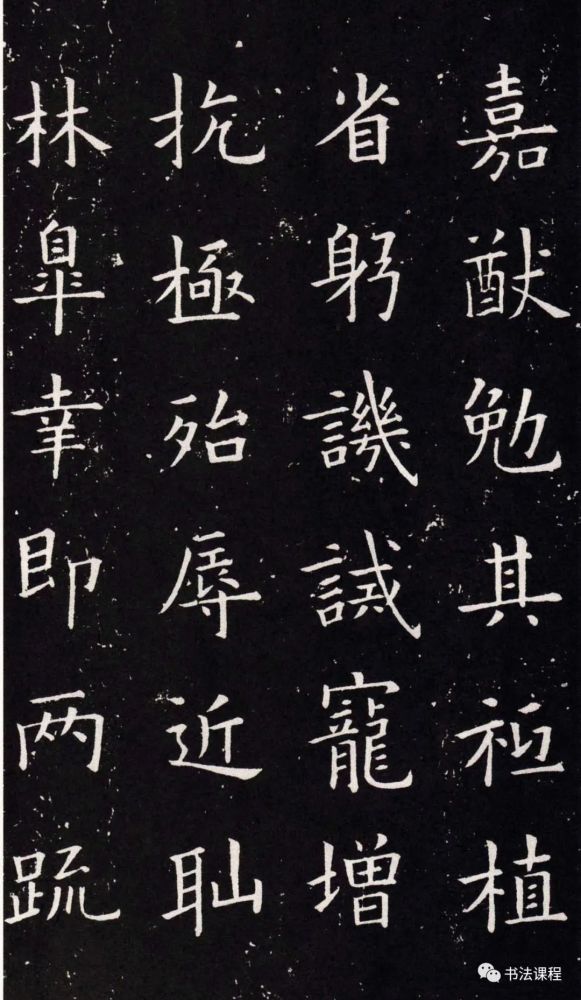 嘉猷勉其祗植
省躬譏誡寵增
抗極殆辱近耻
林皋幸即两疏
书法课程